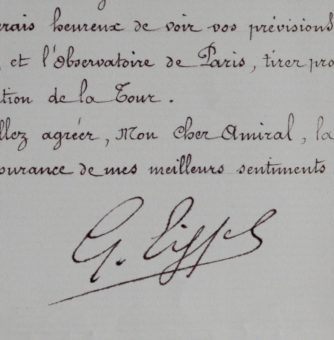 erais heureux de voir vos prévisions
et l'Observatoire de Paris, tirer pro
tion de la Tour.
llez agréer, Mon cher Amiral, la
ourance de mes meilleurs sentiments
G. Eiffel